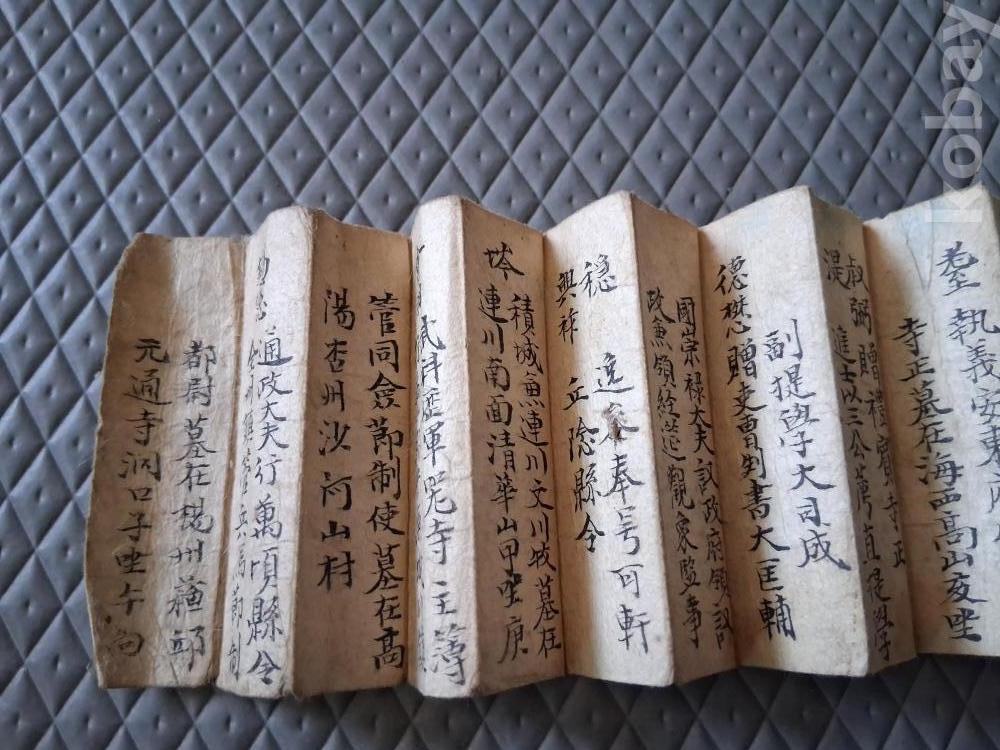 執義安東
寺正墓在海西高山亥坐
叔弼 贈禮賓寺正
湜 進士以三公薦直提學
副提學大司成
德懋贈吏曹判書大匡輔
國崇祿大夫議政府領議
政兼領經筵觀象監事
穩 逸 奉号可軒
興祚 丘隂縣令
積城兼連川文川牧墓在
坽 連川南面清華山甲坐庚
武科 軍器寺主簿
管同僉節制使墓在高
陽杏州沙河山村
通政大夫行萬頃縣令
兵馬節制
都尉墓在楊州
元通寺洞口子坐午向
kobay